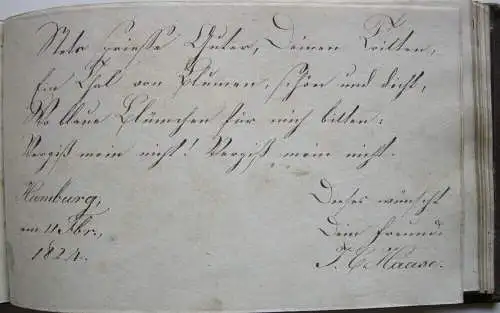 Stets sprieße Guter, Deinen Tritten,
Ein Thal von Blumen, schön und dicht,
Wo blaue Blümchen für mich bitten:
Vergiß mein nicht! Vergiß mein nicht.
Hamburg,
am 11 Fbr.,
1824.
Dieses wünscht
Dein Freund:
J. C. Maase.